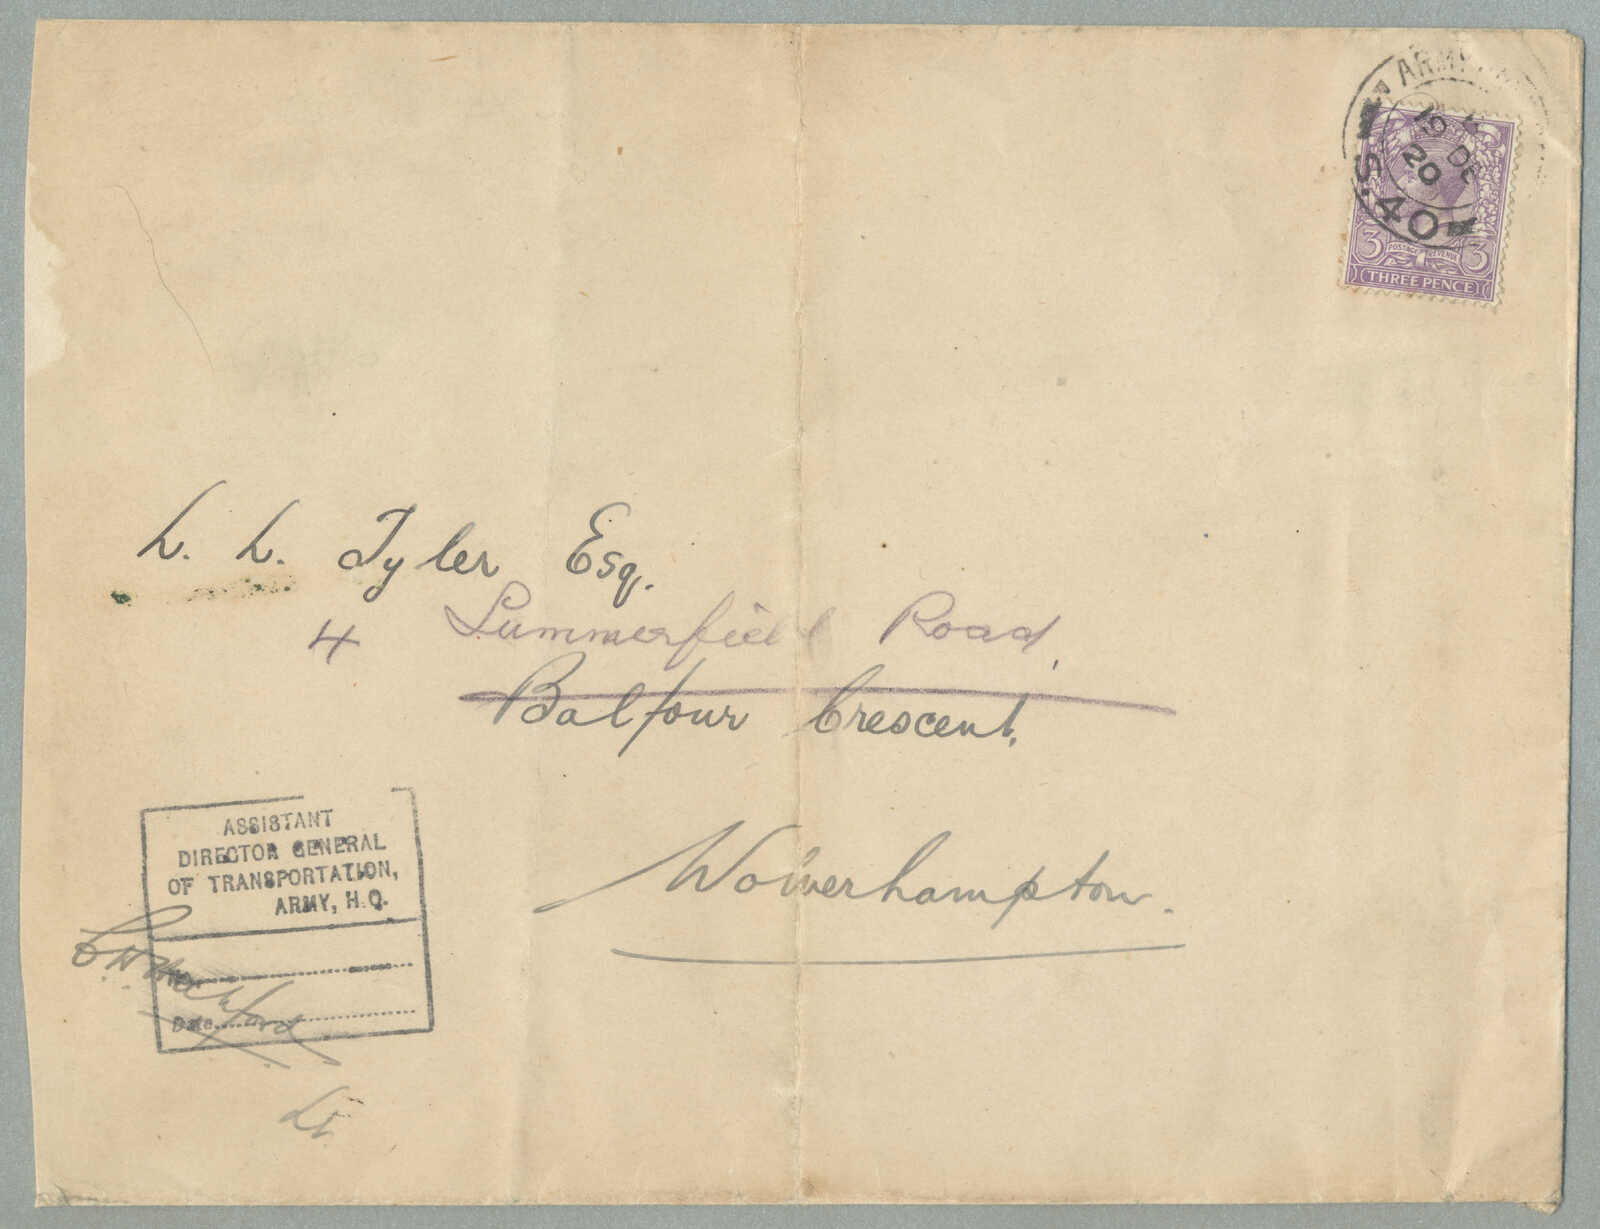 ARMY
S.40
10 DE
20
3 POSTAGE REVENUE 3
THREE PENCE
L. L. Tyler Esq.
4 Summerfield Road,
Balfour Crescent,
Wolverhampton.
ASSISTANT
DIRECTOR GENERAL
OF TRANSPORTATION,
ARMY, H.Q.
Date
Lt.